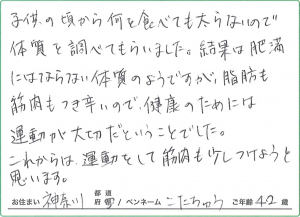 子供の頃から何を食べても太らないので
体質を調べてもらいました。結果は肥満
にはならない体質のようですが、脂肪も
筋肉もつき辛いので、健康のためには
運動が大切だということでした。
これからは、運動をして筋肉も少しつけようと
思います。
お住まい 神奈川 都道府県 / ペンネーム こたちゅう ご年齢 42 歳